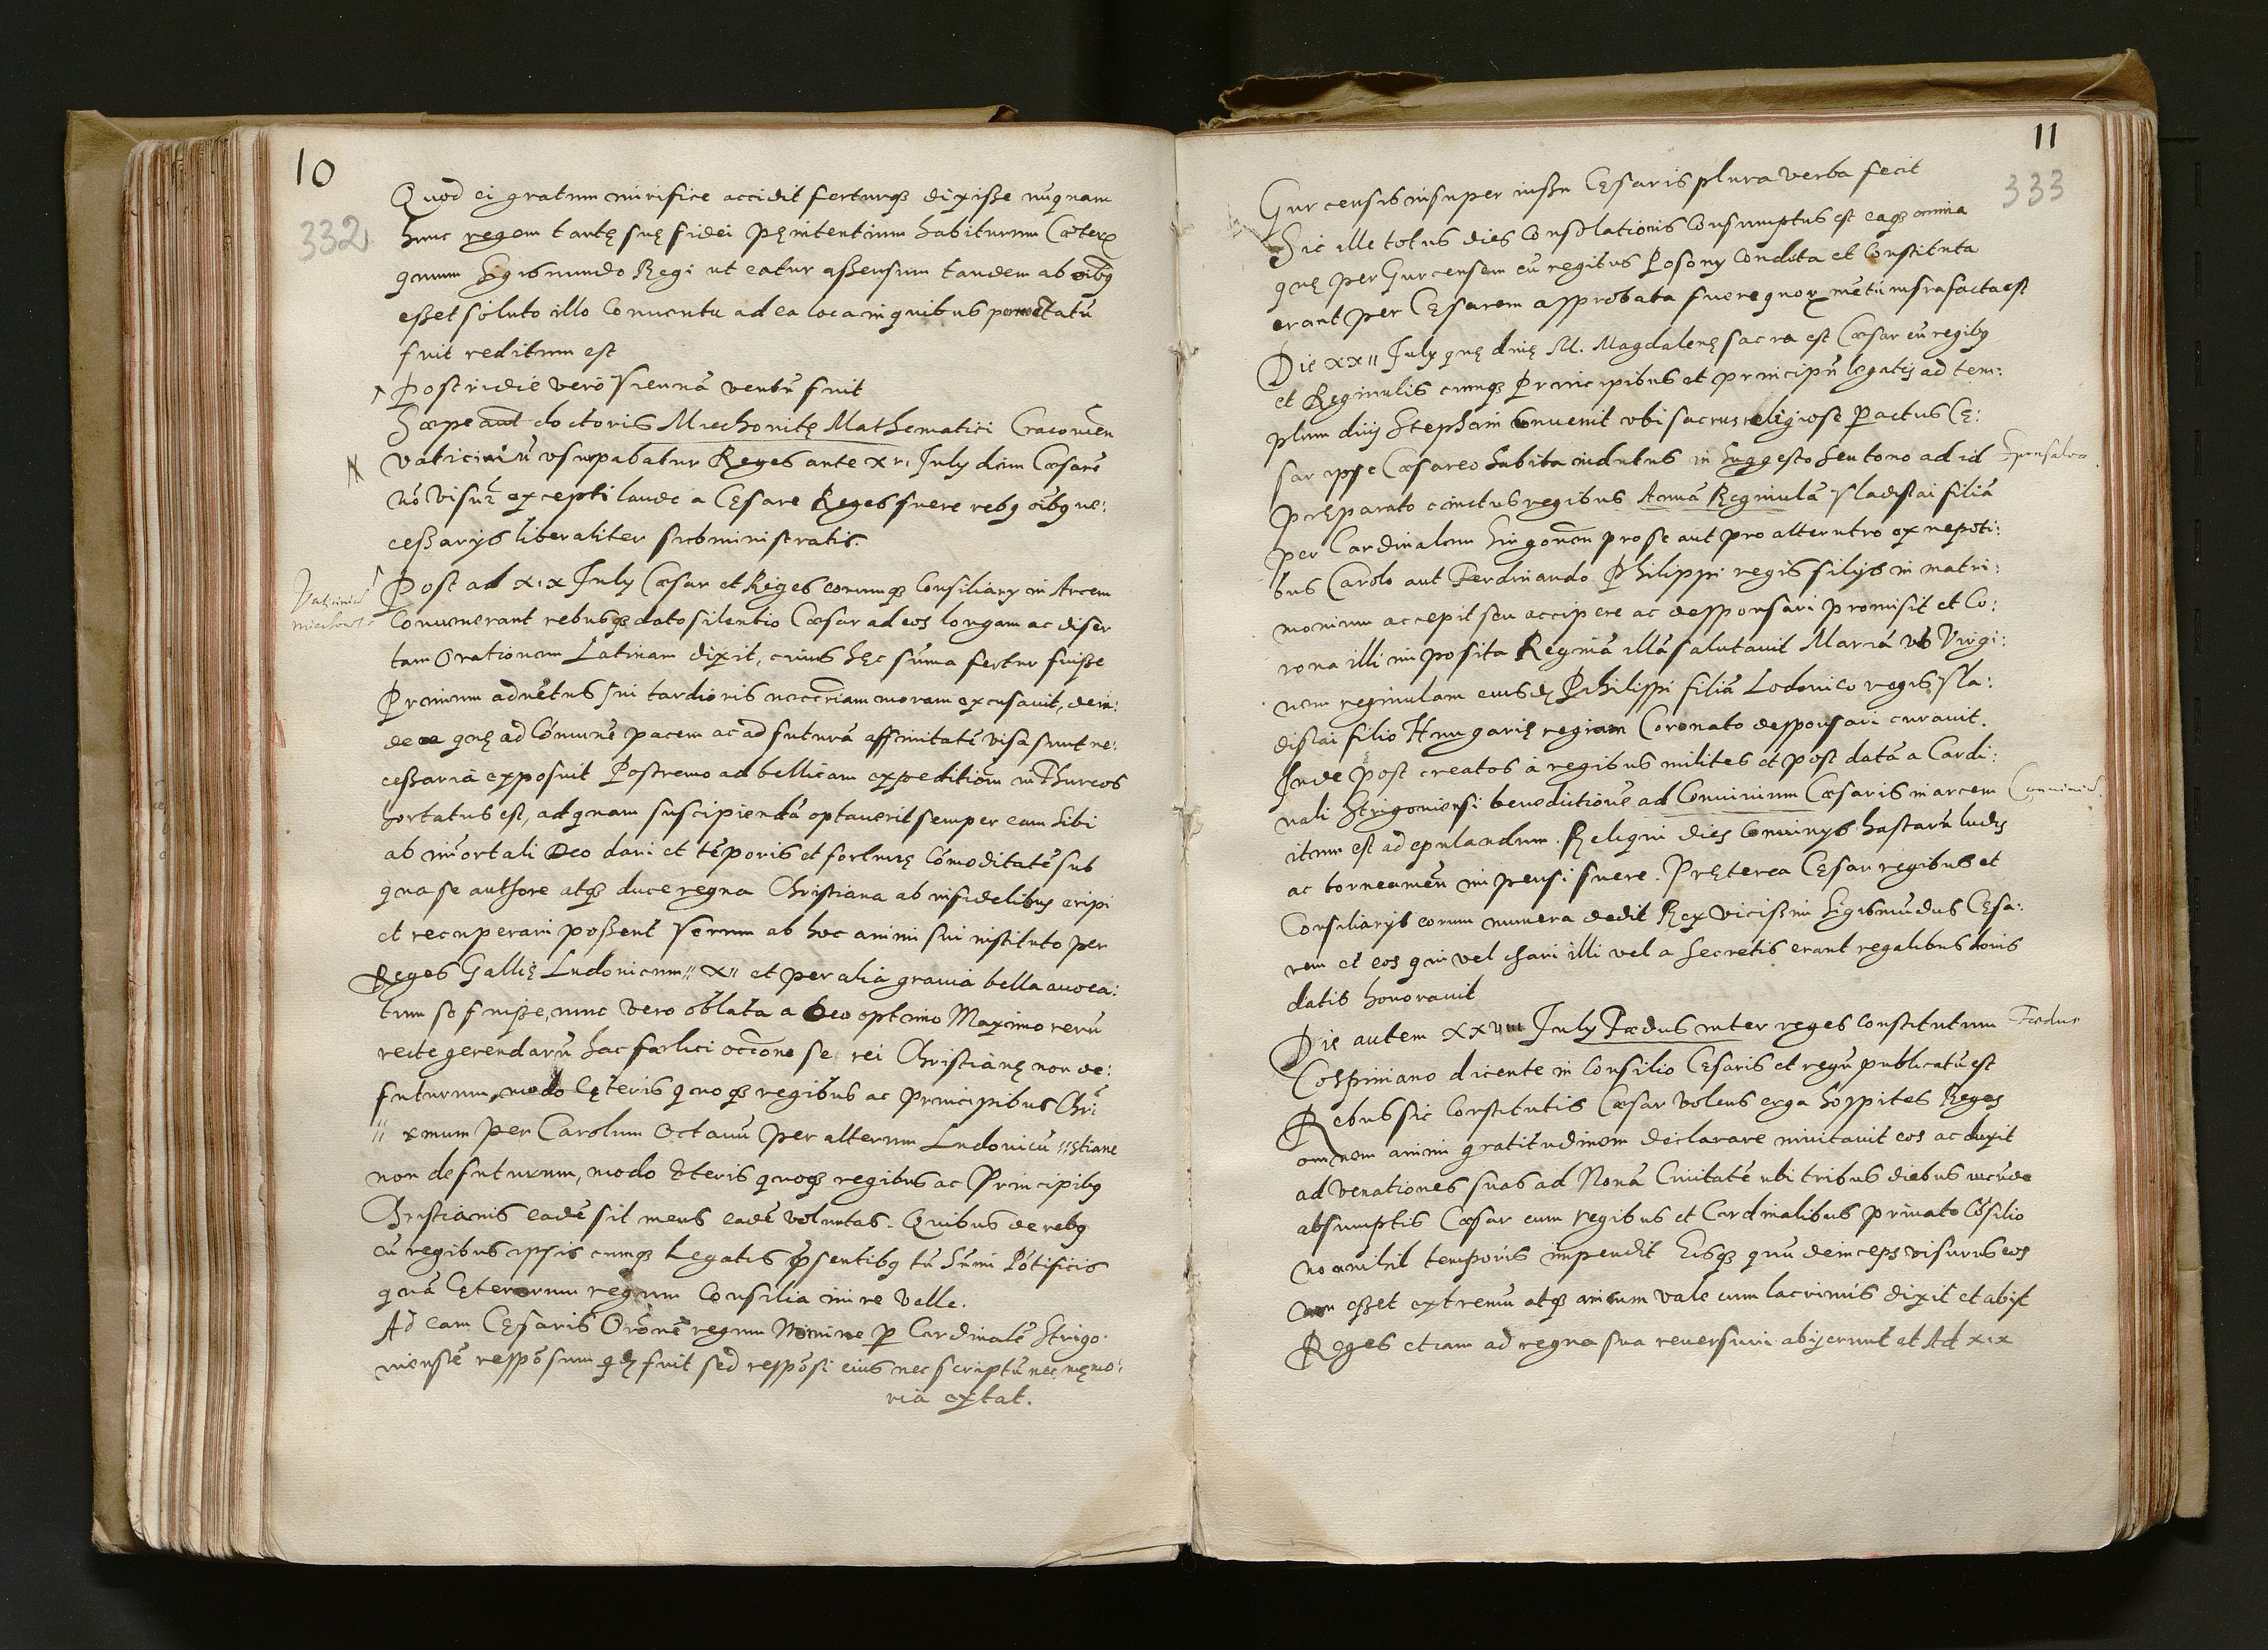 10
332
Quod ei gratum mirifice accidit ferturq3 dixisse nūquam
hunc regem tantę suę fidei pęnitentium habiturum Cæterū
quum Sigismundo Regi ut eatur assensum tandem ab oībq
esset soluto illo Conventu ad ea loca in quibus permetatū
fuit reditum est
Postridie vero Viennā ventū fuit
Sæpe aūt doctoris Miechovitę Mathematici Cracovien̄
vaticiniū usurpabatur Reges ante xvi July diem Cæsarē
nō visur̄ excepti laude a Cęsare Reges fuere rebq oībq ne:
cessarys liberaliter subministratis.
Vaticiniū
Miechovite
Post ad xix July Cæsar et Reges eorumq3 Consiliary in Arcem
Convenerant rebusq3 dato silentio Cæsar ad eos longam ac diser
tam Orationem Latinam dixit, cuius hęc sūma fertur fuisse
Primum adventus sui tardioris necc̄riam moram excusavit, dein:
de ea quę ad Cōmunē pacem ac ad futurā affinitatē visa sunt ne:
cessaria exposuit Postremo ad bellicam expeditiōm in Thurcos
hortatus est, ad quam suscipiendā optaverit semper eam sibi
ab im̄ortali Deo dari et tēporis et fortunę Cōmoditatē sub
qua se authore atq3 duce regna Christiana ab infidelibus eripi
et recuperari possent Verum ab hoc animi sui instituto per
Reges Gallię Ludovicum :: x:: et per alia gravia bella avoca:
tum se fuisse, nunc vero oblata a Deo optimo Maximo rerū
recte gerendarū hac fælici occōne se rei Christianę non de:
futurum, modo Cęteris quoq3 regibus ac Principibus Chrī
:: xmum per Carolum Octavū per alterum Ludovicū ::stiane
non defuturum, modo Ceteris quoq3 regibus ac Principibq
Christianis eadē sit mens eadē voluntas. Quibus de rebq
cū regibus ipsis cumq3 Legatis p̄sentibq tū Sūmi Pōtificis
quā Cęterorum regum Consilia inire velle.
Ad eam Cęsaris Orōnē regum Nomine p Cardinalē Strigo:
niensē respōsum qd fuit sed respōsi eius nec scriptū nec męmo:
ria extat.
11
333
Gurcensis insuper iussu Cęsaris plura verba fecit
Sic ille totus dies Consolationis Consumptus est eaq3 omnia
quę per Gurcensem cū regibus Posony Condita et Constituta
erant per Cęsarem approbata fuere quor̄ mētū infra facta est
Die xxii July quę divę M. Magdalenę sacra est Cæsar cū regibq
et Reginulis cumq3 Principibus et principū legatis ad tem:
plum divi Stephani Convenit ubi sacris religiose peractus Cę:
sar ipse Cæsareo habitu indutus in suggesto seu tono ad id
Sponsalia
pręparato cinctus regibus Annā Reginulā Vladislai filiā
per Cardinalem Strigoneñ pro se aut pro alterutro ex nepoti:
bus Carolo aut Ferdinando Philippi regis filiis in matri:
monium accepit seu accipere ac desponsari promisit et Co:
rona illi imposita Reginā illā salutavit Mariā vō Virgi:
nem reginulam eiusdē Philippi filiā Lodovico regis Vla:
dislai filio Hungarię regiam Coronato desponsari curavit.
Inde post creatos a regibus milites et post datā a Cardi:
nali Strigoniensi benedictionē ad Convivium Cæsaris in arcem
Convivium
itum est ad epulandum. Reliqui dies Conviviys hastarū ludis
ac torneamen̄ impensi fuere. Pręterea Cęsar regibus et
Consiliarys eorum munera dedit Rex vicissim Sigismūdus Cęsa:
rem et eos qui vel chari illi vel a Secretis erant regalibus donis
datis honoravit
Die autem xxviii July Fædus inter reges Constitutum
Fœdus
Cospiniano dicente in Consilio Cęsaris et regū publicatū est
Rebus sic Constitutis Cæsar volens erga hospites Reges
omnem animi gratitudinem declarare invitavit eos ac duxit
ad venationes suas ad Novā Civitatē ubi tribus diebus iucūde
absumptis Cæsar cum regibus et Cardinalibus privato Cōsilio
nonnihil temporis impendit Eisq3 quū deinceps visurus eos
non esset extremū atq3 amicum vale cum lacrimis dixit et abiit
Reges etiam ad regna sua reversuri abierunt et Ad xix